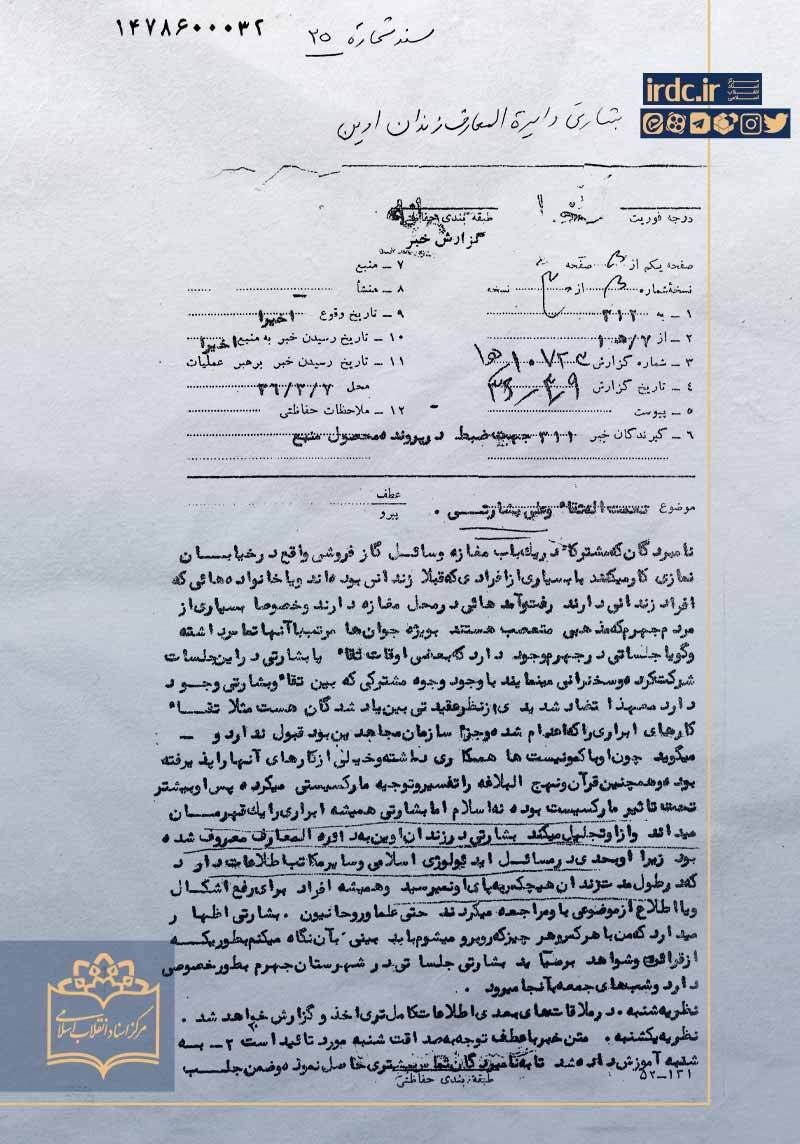 ۱۴۷۸۶۰۰۰۳۲
سند شماره ۲۵
irdc.ir
مرکز اسناد انقلاب اسلامی
بشارتی دایرة المعارف زندان اوین
درجه فوریت
طبقه بندی حفاظتی
گزارش خبر
صفحه یکم از صفحه
۷ ــ منبع
نسخه شماره از نسخه
۸ ــ منشأ
۱ ــ به ۳۱۲
۹ ــ تاریخ وقوع اخیرا
۲ ــ از
۱۰ ــ تاریخ رسیدن خبر به منبع اخیرا
۳ ــ شماره گزارش
۱۱ ــ تاریخ رسیدن خبر برهبر عملیات
۴ ــ تاریخ گزارش
محل ۳۶/۳/۷
۵ ــ پیوست
۱۲ ــ ملاحظات حفاظتی
۶ ــ گیرندگان خبر ۳۱۱ جهت ضبط در پرونده محصول منبع
موضوع نعمت اله تقاء وعلی بشارتی .
عطف
پیرو
نامبردگان که مشترکاً در یک باب مغازه وسائل گاز فروشی واقع در خیابان
نمازی کار میکنند با بسیاری از افرادی که قبلا زندانی بوده اند و یا خانواده هائی که
افراد زندانی دارند رفت و آمد هائی در محل مغازه دارند وخصوصا بسیاری از
مردم جهرم که مذهبی متعصب هستند بویژه جوان ها مرتب با آنها تماس داشته
وگویا جلساتی در جهرم وجود دارد که بعضی اوقات تقاء یا بشارتی در این جلسات
شرکت کرده و سخنرانی مینمایند با وجود وجوه مشترکی که بین تقاء و بشارتی وجود
دارد معهذا تضاد شدیدی از نظر عقیدتی بین یاد شدگان هست مثلا تقاء
کارهای ابراری را که اعدام شده وجزء سازمان مجاهدین بود قبول ندارد و ــ
میگوید چون او با کمونیست ها همکاری داشته و خیلی از کارهای آنها را پذیرفته
بوده و همچنین قرآن و نهج البلاغه را تفسیر و توجیه مارکسیستی میکرده پس او بیشتر
تحت تاثیر مارکسیست بوده نه اسلام اما بشارتی همیشه ابراری را یک قهرمان
میداند و از او تجلیل میکند بشارتی در زندان اوین به دائره المعارف معروف شده
بود زیرا او بحدی در مسائل ایدئولوژی اسلامی و سایر مکاتب اطلاعات دارد
که در طول مدت زندان هیچکس به پای او نمیرسید و همیشه افراد برای رفع اشکال
و یا اطلاع از موضوعی با و مراجعه میکردند حتی علما و روحانیون . بشارتی اظهار
میدارد که من با هر کس و هر چیز که روبرو میشوم با بد بینی بآن نگاه میکنم بطوریکه
از قرائن و شواهد برمیآید بشارتی جلساتی در شهرستان جهرم بطور خصوصی
دارد و شبهای جمعه بآنجا میرود .
نظریه شنبه . در ملاقات های بعدی اطلاعات کامل تری اخذ و گزارش خواهد شد .
نظریه یکشنبه . متن خبر با عطف توجه به صداقت شنبه مورد تائید است ۲ ــ به
شنبه آموزش داده شد تا به نامبردگان تماس بیشتری حاصل نموده و ضمن جلب
طبقه بندی حفاظتی
۵۲ــ۱۳۱
مرکز اسناد انقلاب اسلامی